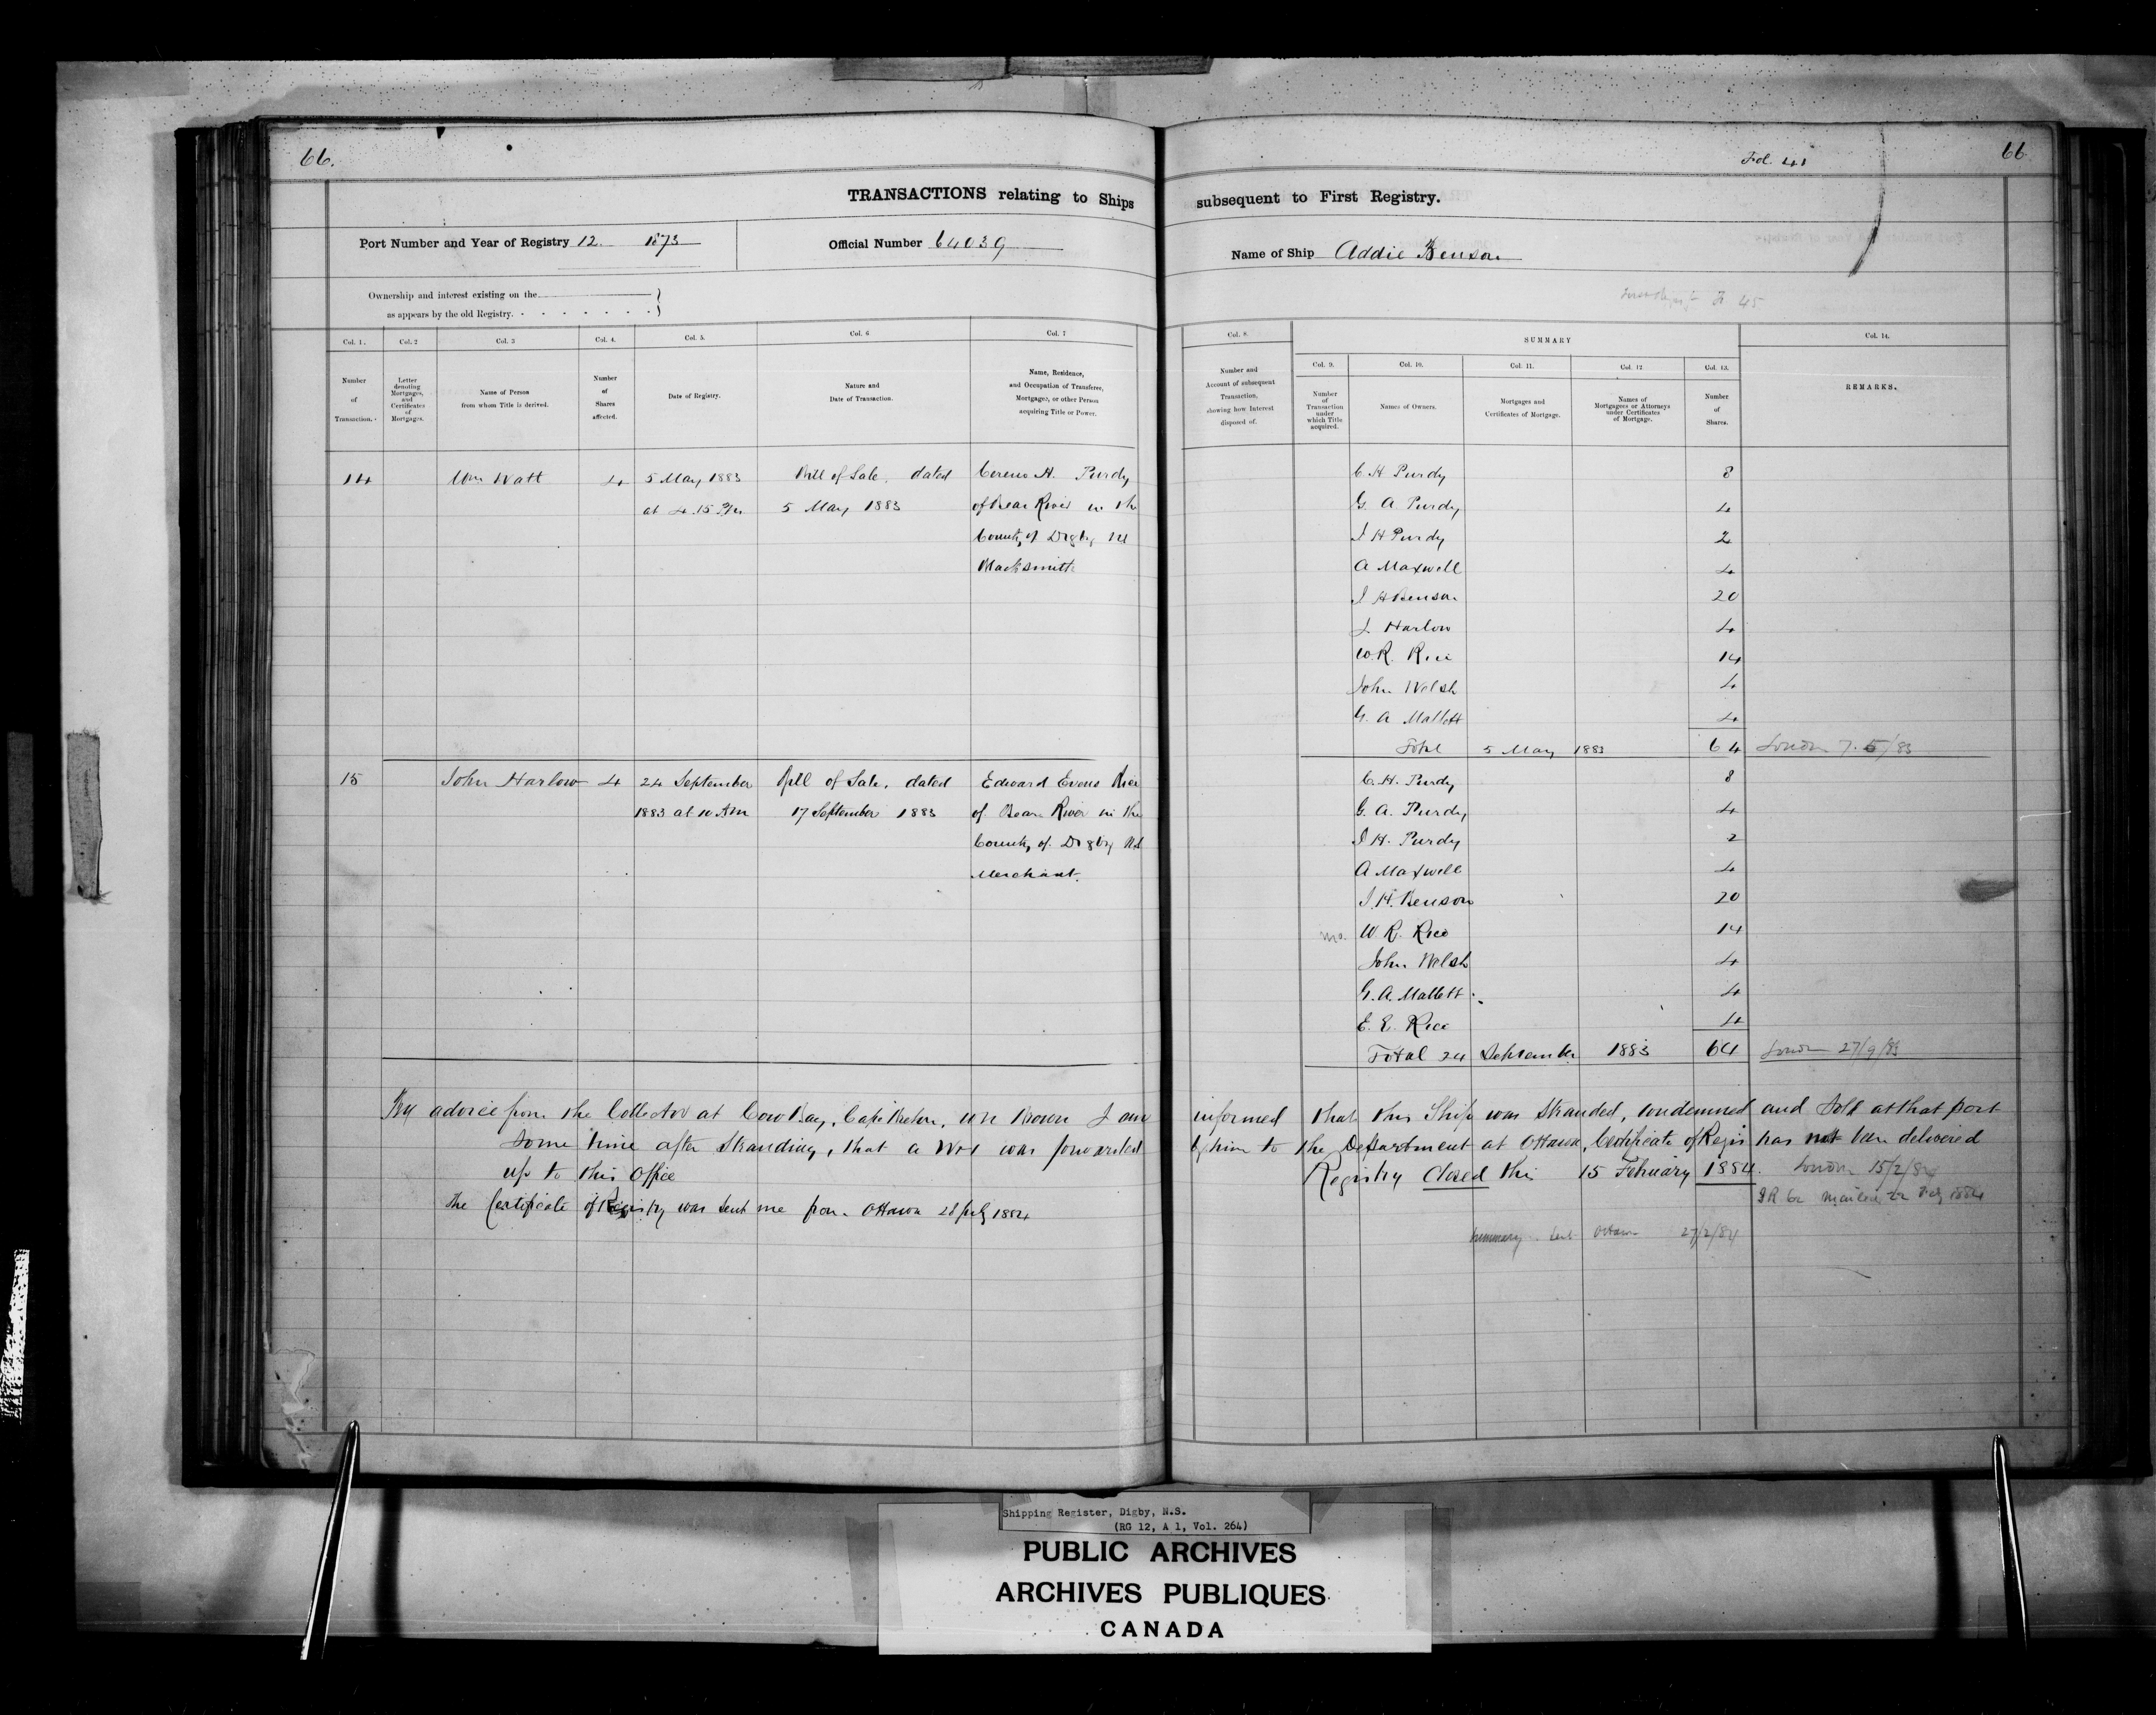 66.
Fol. 41
66
TRANSACTIONS relating to Ships subsequent to First Registry.
Port Number and Year of Registry 12 1873
Official Number 64039
Name of Ship Addie Benson
45
Ownership and interest existing on the
as appears by the old Registry.
Col. 1.
Number of Transaction.
Col. 2
Letter denoting Mortgages, and Certificates of Mortgages.
Col. 3
Name of Person from whom Title is derived.
Col. 4.
Number of Shares affected.
Col. 5.
Date of Registry.
Col. 6
Nature and Date of Transaction.
Col. 7
Name, Residence, and Occupation of Transferee, Mortgagee, or other Person acquiring Title or Power.
Col. 8.
Number and Account of subsequent Transaction, showing how Interest disposed of.
SUMMARY
Col. 9.
Number of Transaction under which Title acquired.
Col. 10.
Names of Owners.
Col. 11.
Mortgages and Certificates of Mortgage.
Col. 12
Names of Mortgagees or Attorneys under Certificates of Mortgage.
Col. 13.
Number of Shares.
Col. 14.
REMARKS.
14 Wm Watt 4 5 May 1883 Bill of Sale, dated Cereno H. Purdy
at 4.15 Pm 5 May 1883 of Bear River in the
County of Digby NS
Blacksmith
C H Purdy 8
G A Purdy 4
J H Purdy 2
A Maxwell 4
J H Benson 20
J. Harlow 4
W. R. Rice 14
John Welsh 4
G. A Mallett 4
Total 5 May 1883 64 London 7.5/83
15 John Harlow 4 24 September Bill of Sale, dated Edward Evens Rice
1883 at 10 Am 17 September 1883 of Bear River in the
County of Digby NS
Merchant.
C. H. Purdy 8
G. A. Purdy 4
J H. Purdy 2
A Maxwell 4
J. H. Benson 20
mo. W. R. Rice 14
John Welsh 4
G. A. Mallett 4
E. E. Rice 4
Total 24 September 1883 64 London 27/9/83
By advice from the Collector at Cow Bay, Cape Breton, I am informed that this Ship was Stranded, condemned and Sold at that port
some time after Stranding, that a was forwarded by him to the Department at Ottawa, Certificate of Regis has not been delivered
up to this Office Registry Closed this 15 February 1884. London 15/2/84
The Certificate of Registry was sent me from Ottawa 28 July 1884 1884
Summary sent Ottawa 27/2/84
Shipping Register, Digby, N.S.
(RG 12, A 1, Vol. 264)
PUBLIC ARCHIVES
ARCHIVES PUBLIQUES
CANADA